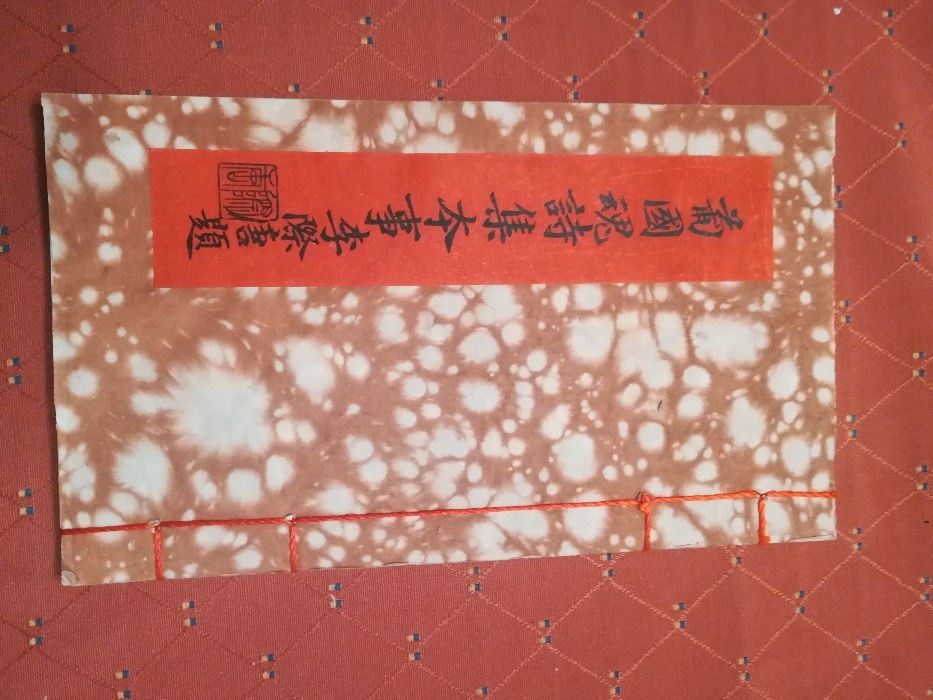 葡國魂詩集本事李際唐題